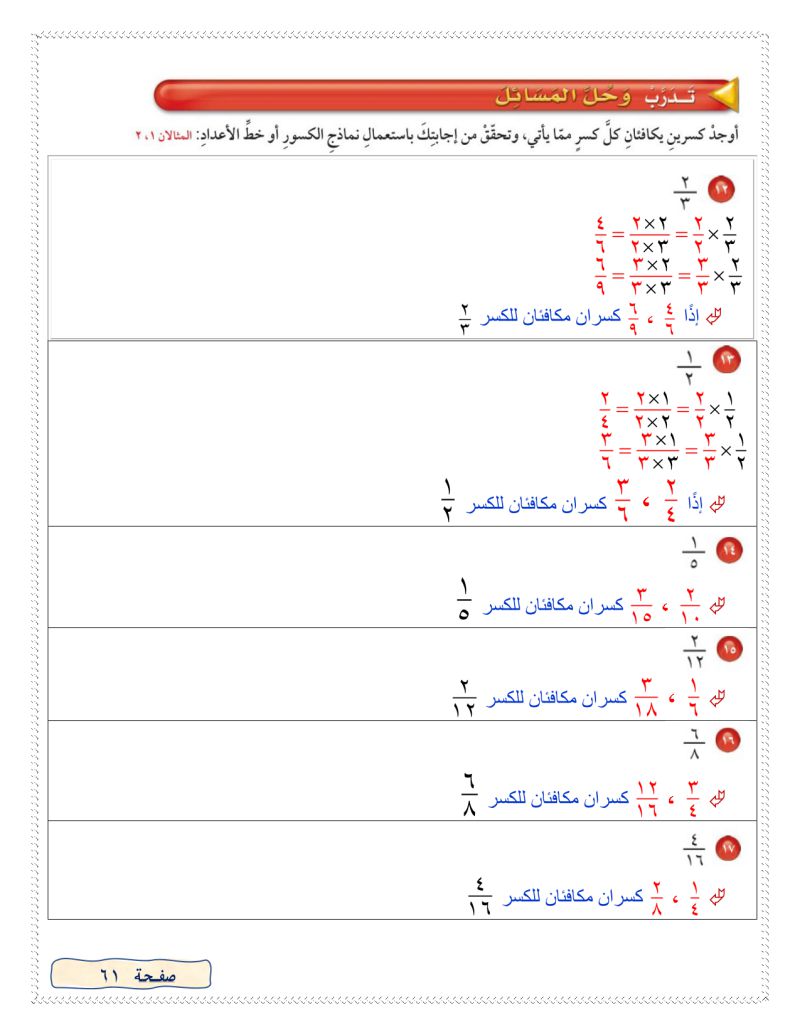 تَـدَرَّبْ وَحُلَّ المَسَائِلَ
أوجدْ كسرينِ يكافئانِ كلَّ كسرٍ ممّا يأتي، وتحقّقْ من إجابتِكَ باستعمالِ نماذجِ الكسورِ أو خطِّ الأعدادِ: المثالان ١، ٢
١٢ ٢/٣
٢/٣ × ٢/٢ = ٢×٢/٢×٣ = ٤/٦
٢/٣ × ٣/٣ = ٣×٢/٣×٣ = ٦/٩
إذًا ٤/٦ ، ٦/٩ كسران مكافئان للكسر ٢/٣
١٣ ١/٢
١/٢ × ٢/٢ = ٢×١/٢×٢ = ٢/٤
١/٢ × ٣/٣ = ٣×١/٣×٣ = ٣/٦
إذًا ٢/٤ ، ٣/٦ كسران مكافئان للكسر ١/٢
١٤ ١/٥
٢/١٠ ، ٣/١٥ كسران مكافئان للكسر ١/٥
١٥ ٢/١٢
١/٦ ، ٣/١٨ كسران مكافئان للكسر ٢/١٢
١٦ ٦/٨
٣/٤ ، ١٢/١٦ كسران مكافئان للكسر ٦/٨
١٧ ٤/١٦
١/٤ ، ٢/٨ كسران مكافئان للكسر ٤/١٦
صفحة ٦١